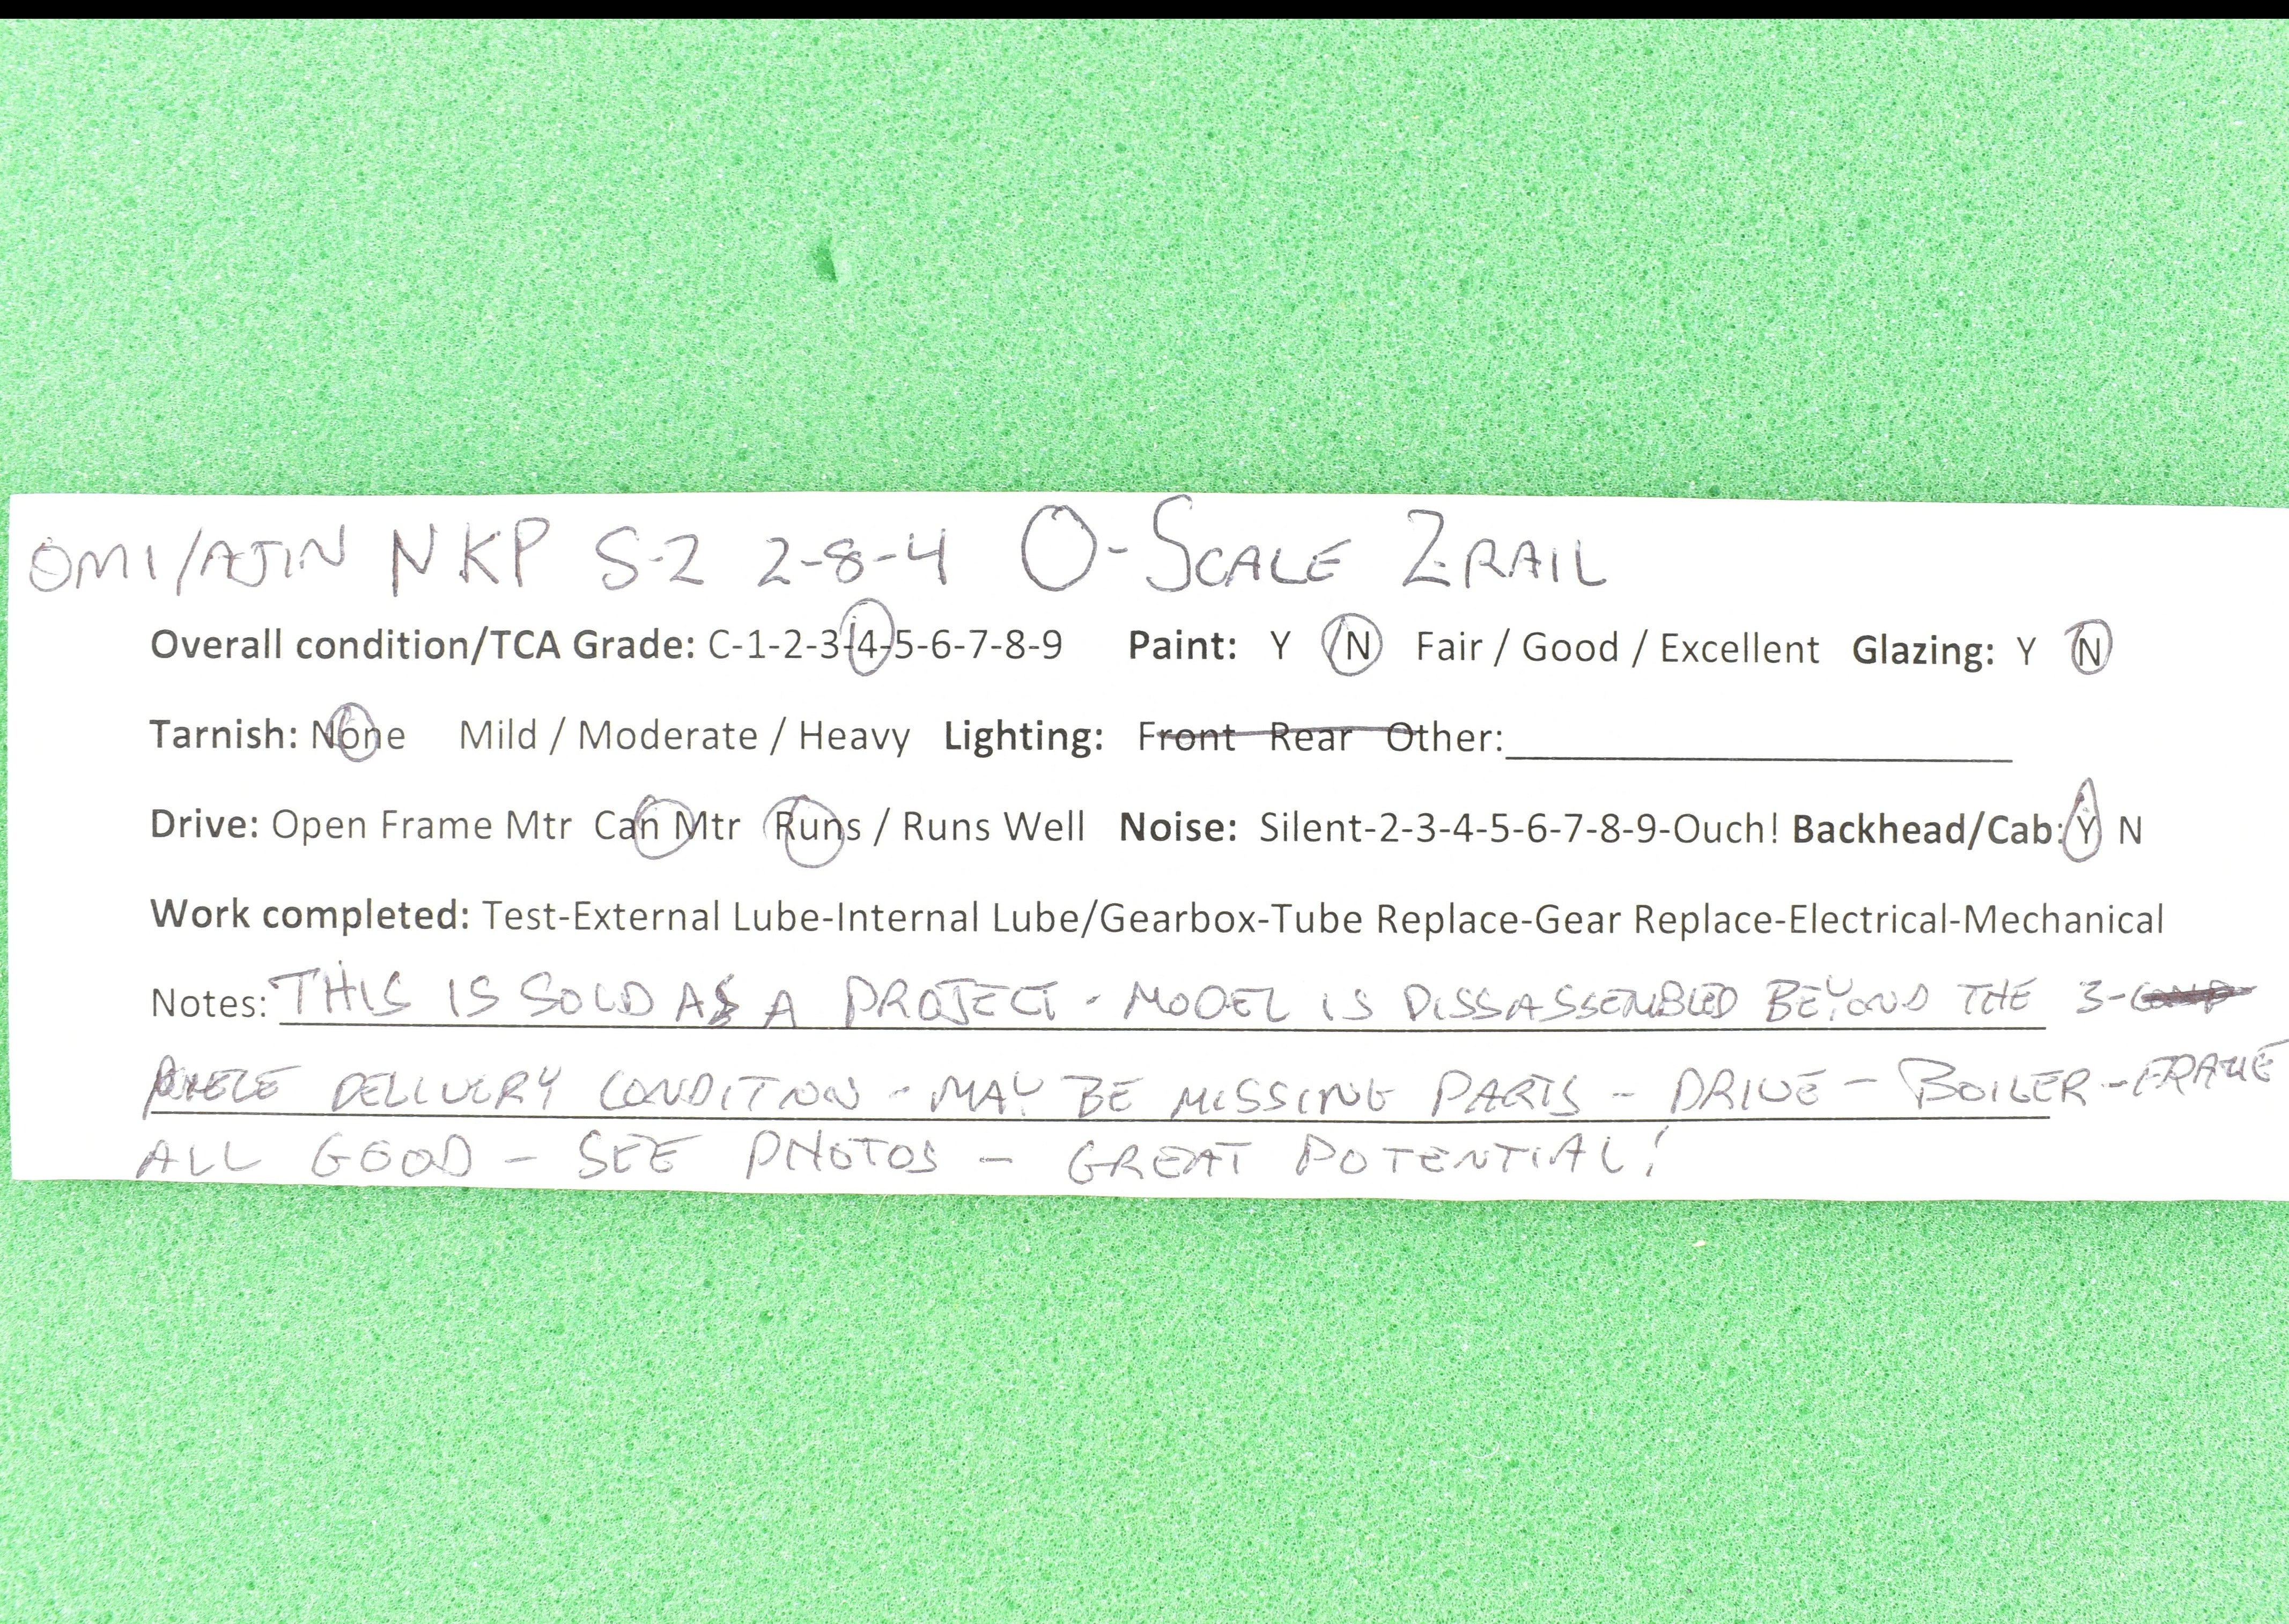 OMI/AJIN NKP S-2 2-8-4 O-SCALE 2 RAIL
Overall condition/TCA Grade: C-1-2-3-4-5-6-7-8-9 Paint: Y N Fair / Good / Excellent Glazing: Y N
Tarnish: None Mild / Moderate / Heavy Lighting: Front Rear Other:
Drive: Open Frame Mtr Can Mtr Runs / Runs Well Noise: Silent-2-3-4-5-6-7-8-9-Ouch! Backhead/Cab: Y N
Work completed: Test-External Lube-Internal Lube/Gearbox-Tube Replace-Gear Replace-Electrical-Mechanical
Notes: THIS IS SOLD AS A PROJECT - MODEL IS DISSASSEMBLED BEYOND THE 3-
DELIVERY CONDITION - MAY BE MISSING PARTS - DRIVE - BOILER - FRAME
ALL GOOD - SEE PHOTOS - GREAT POTENTIAL!